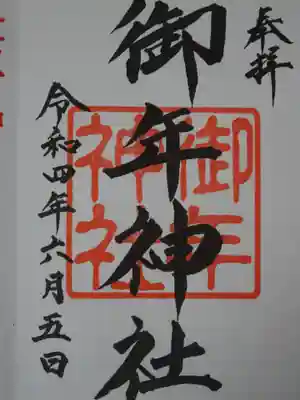 奉拝
御年神社
御年
神社
令和四年六月五日